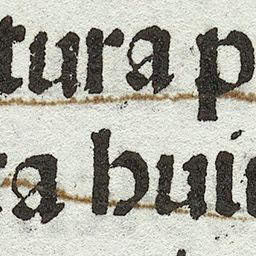 tura p
ra hui